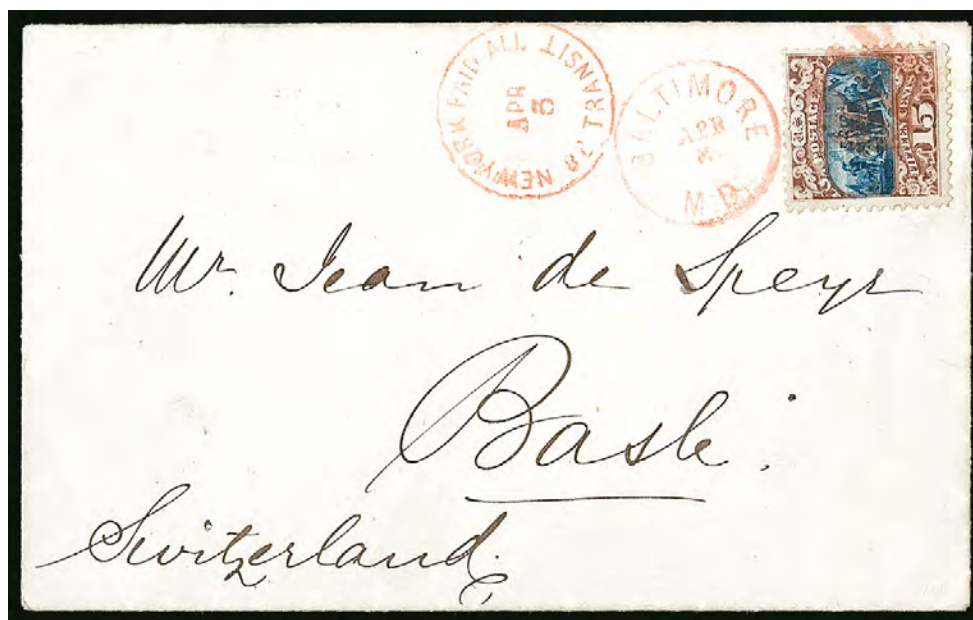 NEW YORK PAID ALL BR. TRANSIT
APR
5
BALTIMORE
APR
MD.
U.S. POSTAGE
FIFTEEN CENTS
15
Mr. Jean de Speyr
Basle.
Switzerland.